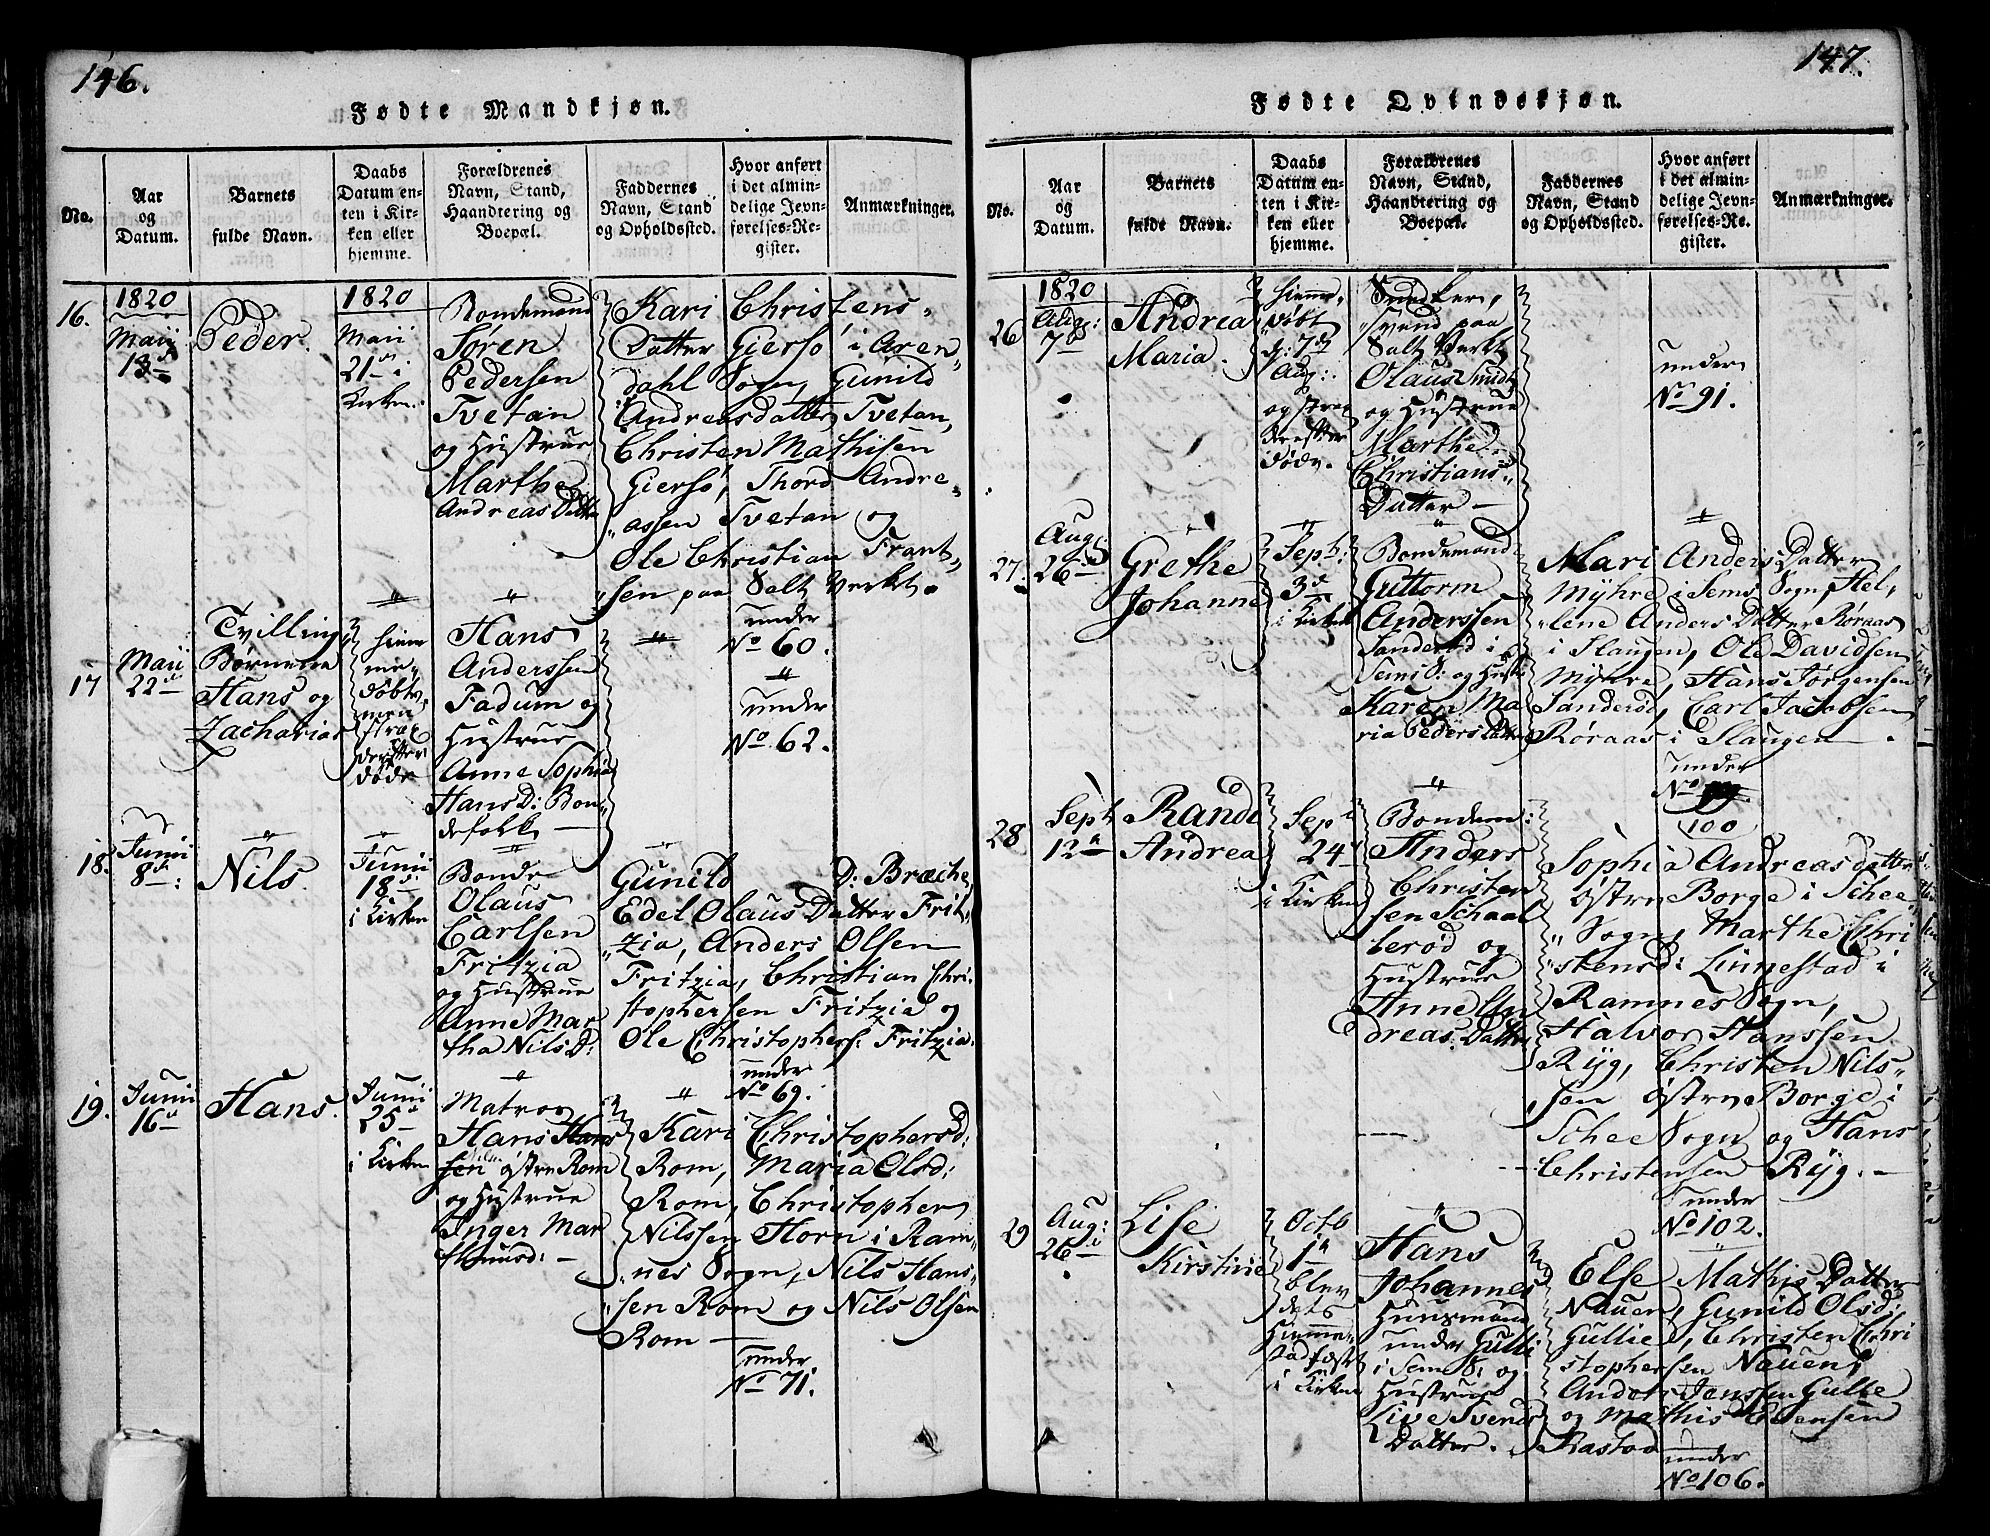 146.
Fødte Mandkjøn.
No.
Aar
og
Datum.
Barnets
fulde Navn.
Daabs
Datum en-
ten i Kir-
ken eller
hjemme.
Forældrenes
Navn, Stand,
Haandtering og
Boepæl.
Faddernes
Navn, Stand
og Opholdssted.
Hvor anført
i det almin-
delige Jevn-
førelses-Re-
gister.
Anmærkninger.
16.
1820
Maii
13
Peder.
1820
Maii
21 i
Kirken.
Bondemand
Søren
Pedersen
Tvetan
og Hustrue
Marthe
Andreas Datter
Kari Christens-
Datter Giersø i Aren-
dahl Sogn, Gunild
Andreasdatter Tvetan,
Christen Mathisen
Giersø, Thord Andre-
assen Tvetan og
Ole Christian Frant-
sen paa Salt Verket.
under
No 60.
17
Maii
22
Tvilling
Børnene
Hans og
Zacharias
hiem-
me-
døbt,
men
strax
derefter
døde
Hans
Anderssen
Fadum og
Hustrue
Anne Sophia
Hans D: Bon-
defolk
under
No 62.
18.
Junii
8
Nils.
Junii
18
i Kirken
Bonde
Olaus
Carlsen
Fritzia
og Hustrue
Anne Mar
tha Nils D:
Gunild D: Bræche,
Edel Olaus Datter Frit-
zia, Anders Olsen
Fritzia, Christian Chri-
stophersen Fritzie og
Ole Christophers: Fritzia.
under
No 69.
19.
Junii
16
Hans.
Junii
25
i Kirken
Matros
Hans Hans
sen østre Rom
og Hustrue
Inger Mar
Kari Christophersd:
Rom, Maria Olsd:
Rom, Christopher
Nilssen Horn i Ram-
nes Sogn, Nils Hans-
sen Rom og Nils Olsen
Rom
under
No 71.
147.
Fødte Qvindekjøn.
No.
Aar
og
Datum.
Barnets
fulde Navn.
Daabs
Datum en-
ten i Kir-
ken eller
hjemme.
Forældrenes
Navn, Stand,
Haandtering og
Boepæl.
Faddernes
Navn, Stand
og Opholdssted.
Hvor anført
i det almin-
delige Jevn-
førelses-Re-
gister.
Anmærkninger.
26
1820
Aug:
7
Andrea
Maria.
hiemme-
døbt
d: 7
Aug:
og strax
derefter
døde.
Snedker,
svend paa
Salt Verket
Olaus
og Hustrue
Marthe
Christians-
Datter
under
No 91.
27.
Aug:
26
Grethe
Johanne
Sept:
3
i Kirken
Bondemand
Guttorm
Anderssen
Sanderød i
Sem S: og Hust:
Karen Ma
ria Peders Datter
Mari Anders Datter
Myhre i Sems Sogn, Hel-
lene Anders Datter Røraas
i Slaugen, Ole Davidsen
Myhre, Hans Jørgensen
Sanderød, Carl Jacobsen
Røraas i Slaugen
under
No
100
28
Sept
12
Randi
Andrea
Sept
24
i Kirken
Bondem:
Anders
Christen
sen Schaal
lerød og
Hustrue
Anne An
dreas: Datter
Sophia Andreasdatter
østre Borge i Schee-
Sogn, Marthe Chri
stensd: Linnestad i
Ramnes Sogn,
Halvor Hanssen
Ryg, Christen Nils-
sen østre Borge i
Schee Sogn og Hans
Christensen Ryg.
under
No 102.
29
Aug:
26
Lise
Kirstine
Octb
1
blev
dets
Hiemme-
daab fæstet
i Kirken
Hans
Johannes
Huusmand
under Gulli
i Sem S: og
Hustrue
Live Svends
Datter.
Else Mathis Datter
Nauen, Gunild Olsd:
Gullie, Christen Chri
stophersen Nauen,
Anders Jenssen Gullie
og Mathis
Rastad
under
No 106.